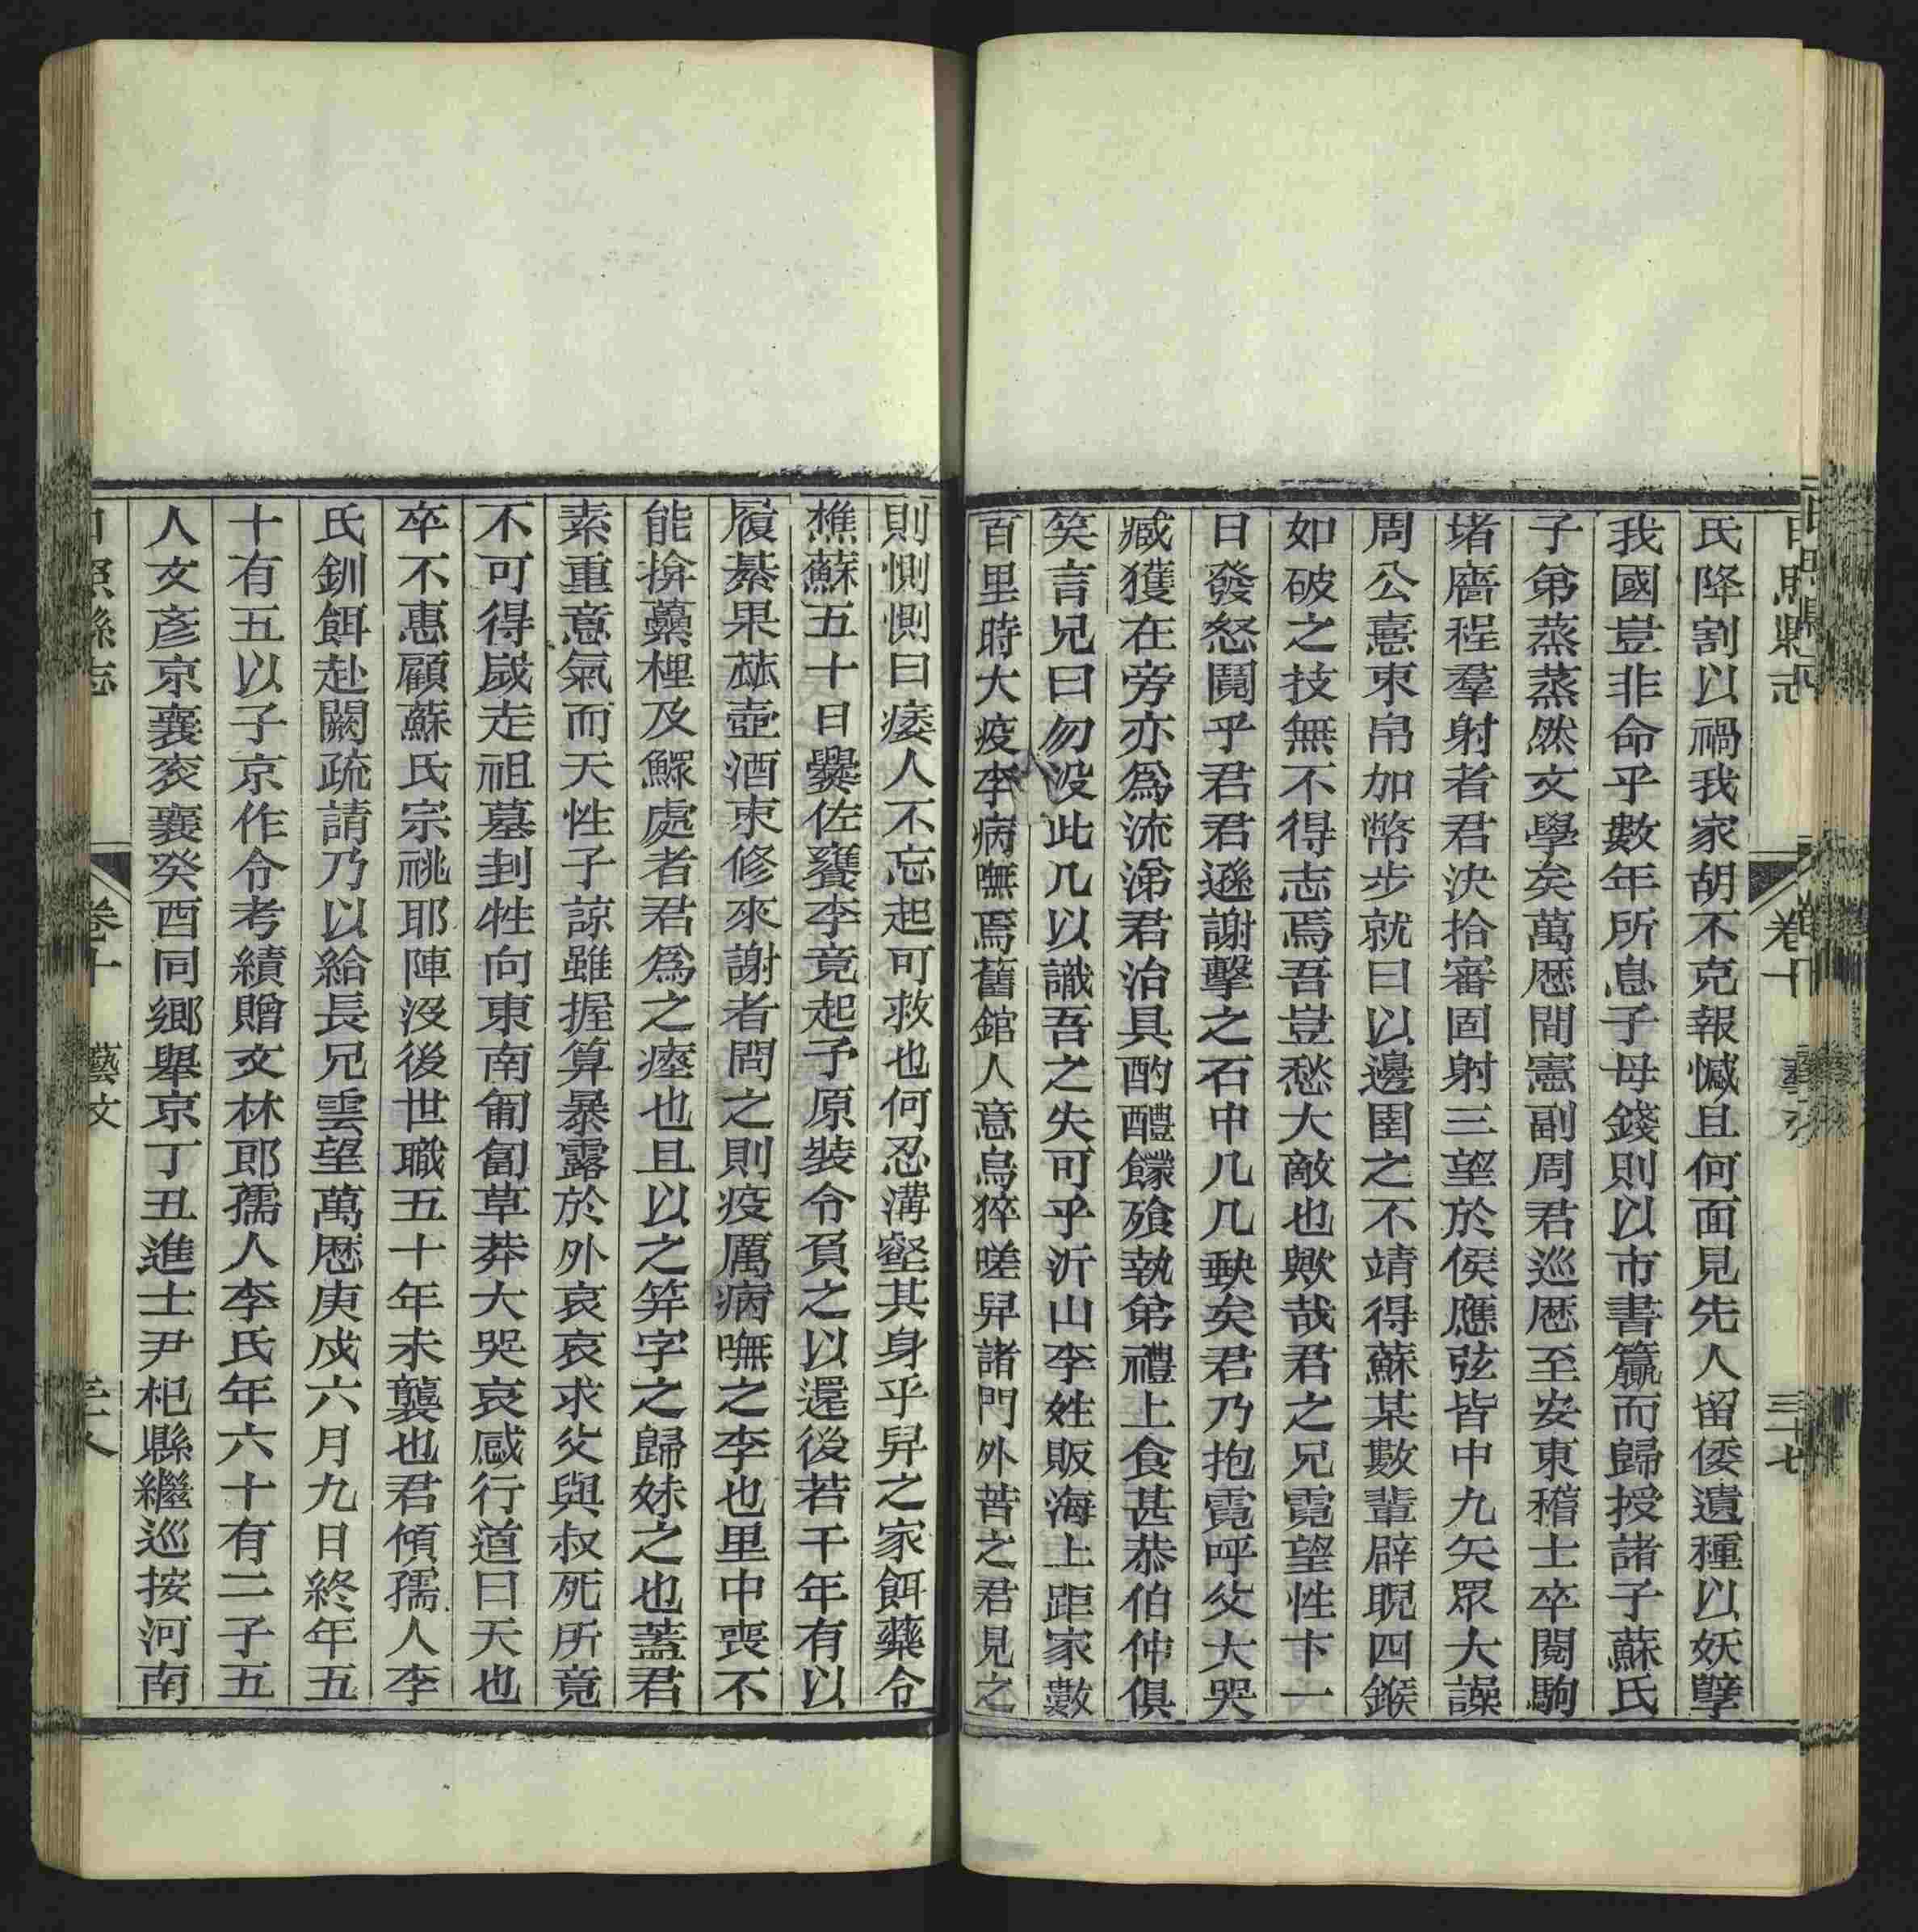 日照縣志 卷十 藝文 三十七
氏降割以禍我家胡不克報憾且何面見先人留倭遺種以妖孽
我國豈非命乎數年所息子母錢則以市書籯而歸授諸子蘇氏
子弟蒸蒸然文學矣萬厯間憲副周君巡厯至安東稽士卒閱駒
堵廥程羣射者君決拾審固射三望於侯應弦皆中九矢眾大譟
周公憙束帛加幣步就曰以邊圉之不靖得蘇某數輩辟睨四鍭
如破之技無不得志焉吾豈愁大敵也歟哉君之兄霓望性卞一
日發怒鬩乎君君遜謝擊之石中几几缺矣君乃抱霓呼父大哭
臧獲在旁亦為流涕君治具酌醴饛飱執弟禮上食甚恭伯仲俱
笑言兄曰勿没此几以識吾之失可乎沂山李姓販海上距家數
百里時大疫李病嘸焉舊館人意烏猝嗟舁諸門外苦之君見之
則惻惻曰痿人不忘起可救也何忍溝壑其身乎舁之家餌藥令
樵蘇五十日爨佐饔李竟起予原裝令負之以還後若干年有以
履綦果蓏壺酒束修來謝者問之則疫厲病嘸之李也里中喪不
能揜虆梩及鰥處者君為之瘞也且以之笄字之歸妹之也蓋君
素重意氣而天性子諒雖握算暴露於外哀哀求父與叔死所竟
不可得歲走祖墓刲牲向東南匍匐草莽大哭哀感行道曰天也
卒不惠顧蘇氏宗祧耶陣沒後世職五十年未襲也君傾孺人李
氏釧餌赴闕疏請乃以給長兄雲望萬厯庚戍六月九日終年五
十有五以子京作令考績贈文林郎孺人李氏年六十有二子五
人文彥京襄袞襄癸酉同鄉舉京丁丑進士尹杞縣繼巡按河南
日照縣志 卷十 藝文 三十八